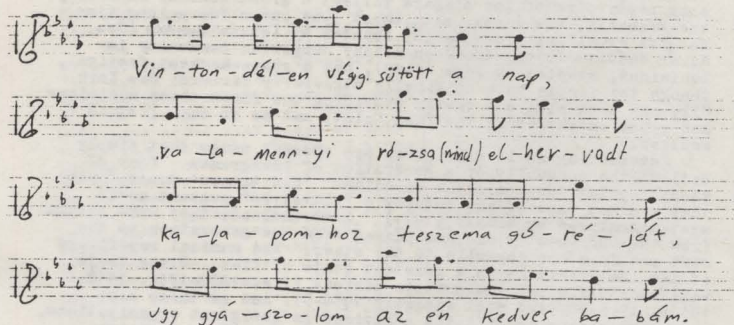 Vin-ton-dál-en végig sütött a nap,
va-la-menn-yi ró-zsa (mind) el-her-vadt
ka-la-pom-hoz teszema gó-ré-ját,
ugy gyá-szo-lom az én kedves ba-bám.